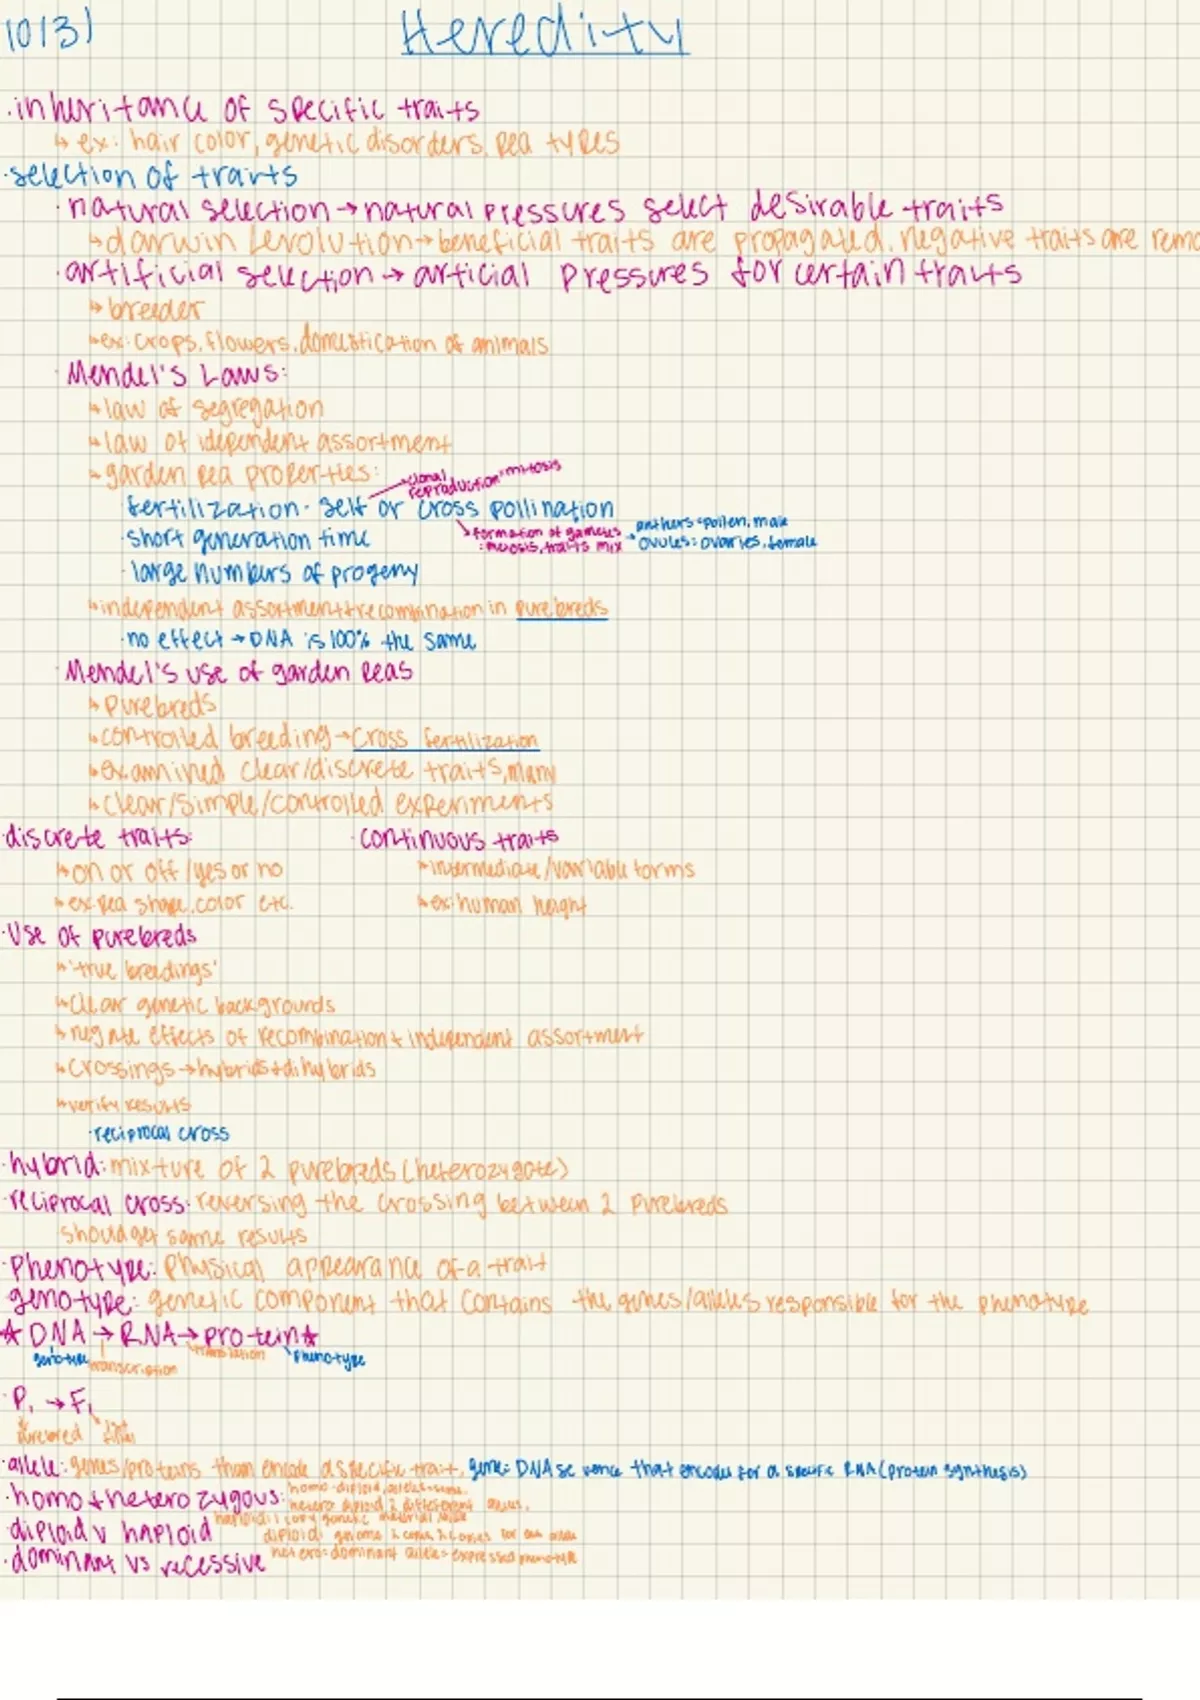 10/31
Heredity
·inheritance of specific traits
↳ ex: hair color, genetic disorders, pea types
·selection of traits
·natural selection→natural pressures select desirable traits
↳darwin & evolution→beneficial traits are propagated, negative traits are remo
·artificial selection→articial pressures for certain traits
↳breeder
↳ex: crops, flowers, domestication of animals
·Mendel's Laws:
↳law of segregation
↳law of idependent assortment
↳garden pea properties:
→clonal reproduction=mitosis
·fertilization- self or cross pollination
→formation of gametes :meiosis, traits mix
→anthers=pollen, male
→ovules=ovaries, female
·short generation time
·large numbers of progeny
↳independent assortment+recombination in purebreds
·no effect→DNA is 100% the same
·Mendel's use of garden peas
↳purebreds
↳controlled breeding→cross fertilization
↳examined clear/discrete traits, many
↳clear/simple/controlled experiments
·discrete traits:
↳on or off/yes or no
↳ex: pea shape, color etc.
·continuous traits
↳intermediate/variable forms
↳ex: human height
·Use of purebreds
↳'true breedings'
↳clear genetic backgrounds
↳negate effects of recombination+independent assortment
↳crossings→hybrids+dihybrids
↳verify results
·reciprocal cross
·hybrid: mixture of 2 purebreds (heterozygote)
·reciprocal cross: reversing the crossing between 2 purebreds
should get same results
·Phenotype: physical appearance of a trait
·genotype: genetic component that contains the genes/alleles responsible for the phenotype
★DNA→RNA→protein★
genotype transcription translation phenotype
·P₁→F₁
purebred 1st filial
·allele: genes/proteins than encode a specific trait, gene: DNA se uence that encodes for a specific RNA (protein synthesis)
·homo+heterozygous: homo-diploid, alleles=same
hetero diploid 2 different alleles,
·diploid v haploid haploid: 1 copy genetic material
diploid: genome 2 copies
·dominant vs recessive hetero=dominant allele=expressed phenotype